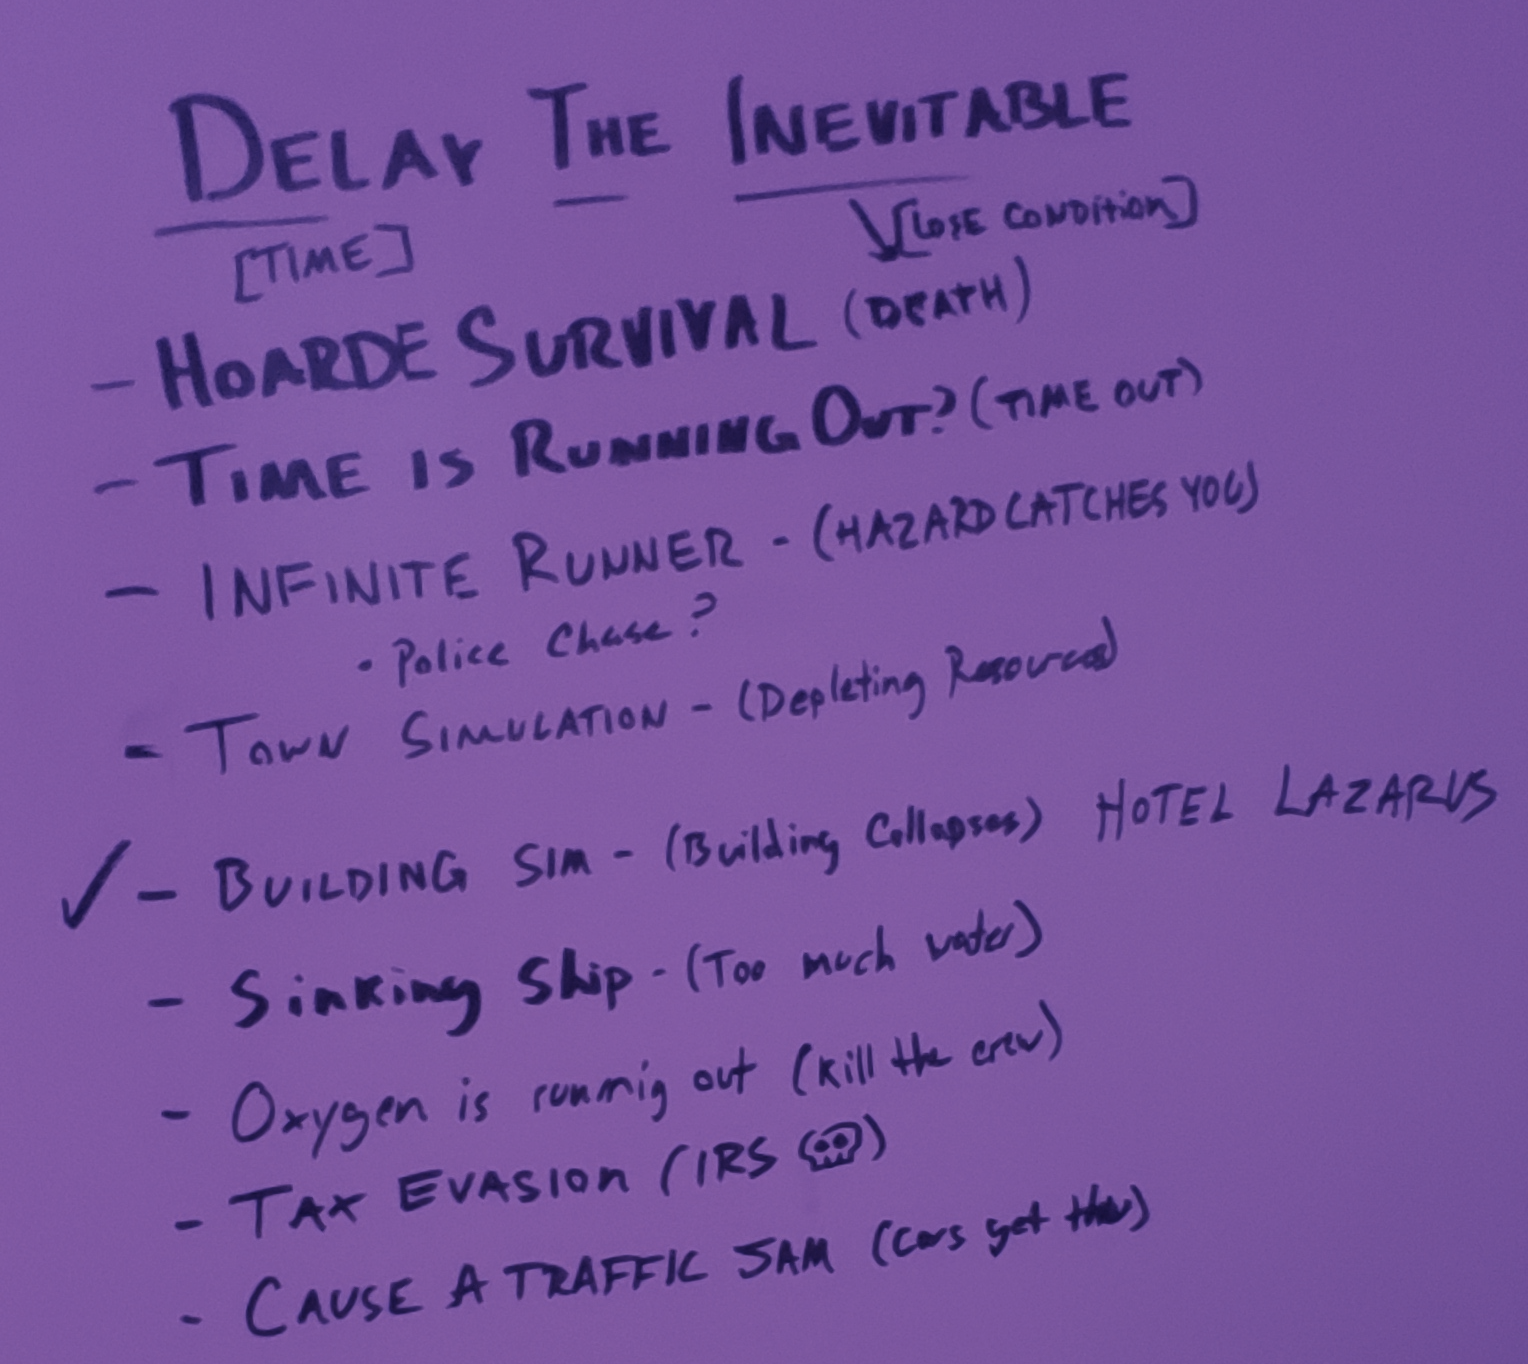 DELAY THE INEVITABLE
[TIME] [LOSE CONDITION]
- HOARDE SURVIVAL (DEATH)
- TIME IS RUNNING OUT? (TIME OUT)
- INFINITE RUNNER - (HAZARD CATCHES YOU)
• Police Chase?
- TOWN SIMULATION - (Depleting Resources)
✓ - BUILDING SIM - (Building Collapses) HOTEL LAZARUS
- Sinking Ship - (Too much water)
- Oxygen is running out (kill the crew)
- TAX EVASION (IRS 💀)
- CAUSE A TRAFFIC JAM (cars get thru)